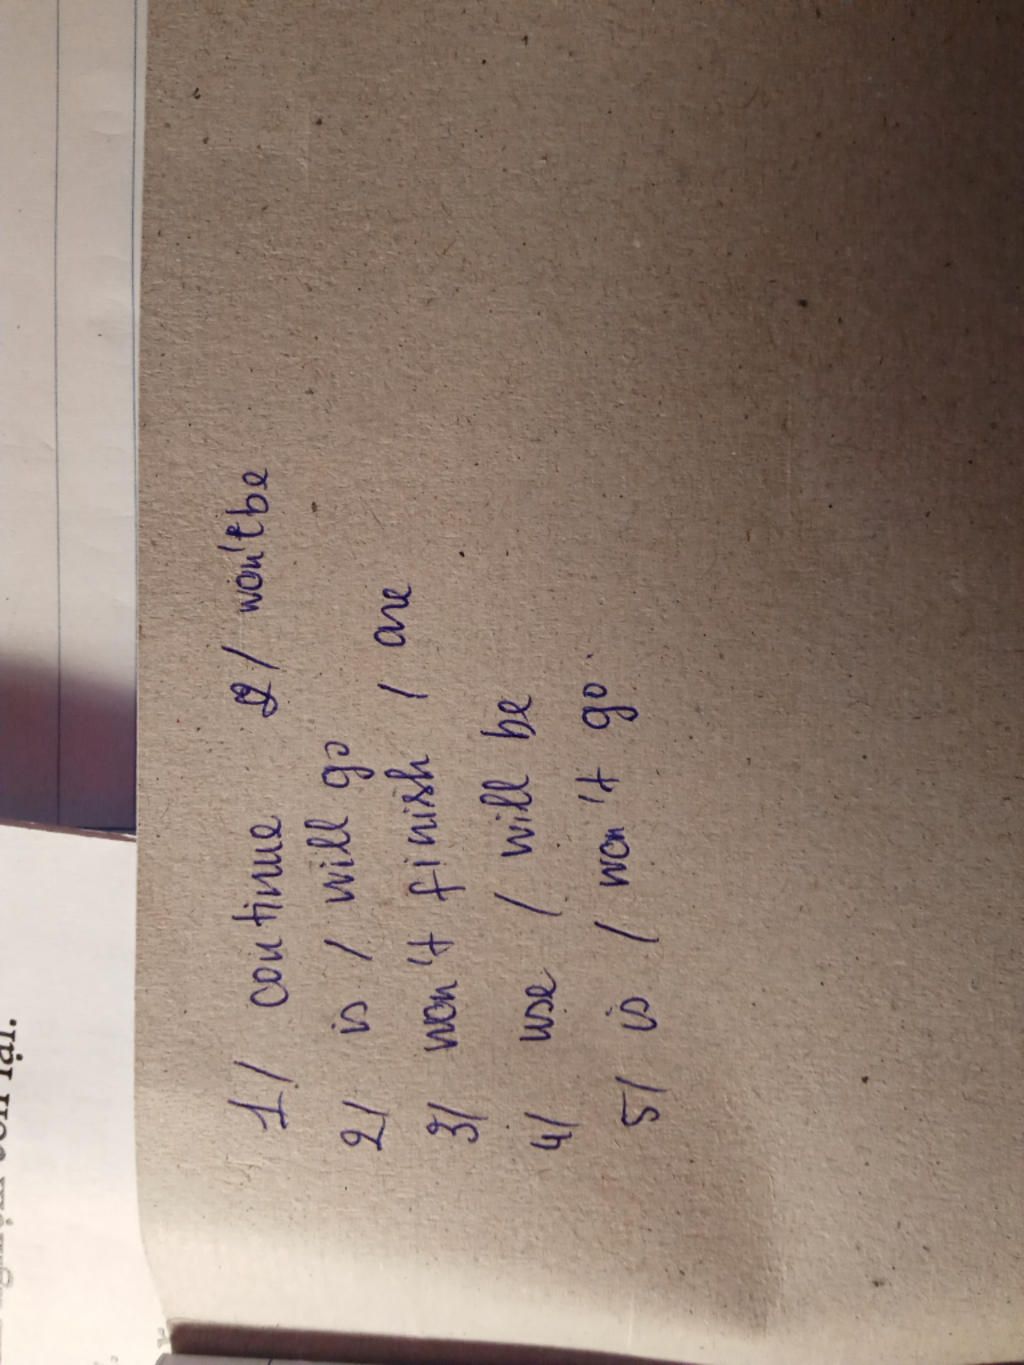 1/ continue 2/ won't be
2/ is / will go
3/ won't finish / are
4/ use / will be
5/ is / won't go.
lại.